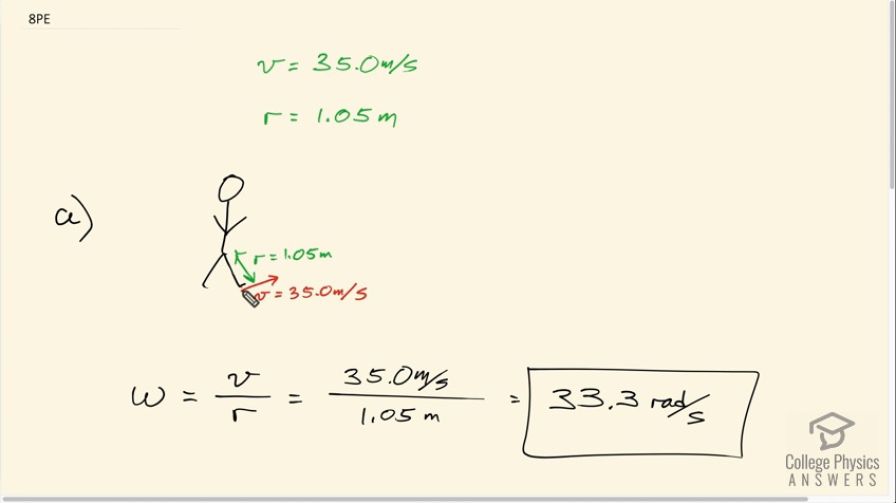 8PE
v = 35.0 m/s
r = 1.05 m
a)
r = 1.05 m
v = 35.0 m/s
ω = v/r = 35.0 m/s / 1.05 m = 33.3 rad/s
College Physics
ANSWERS